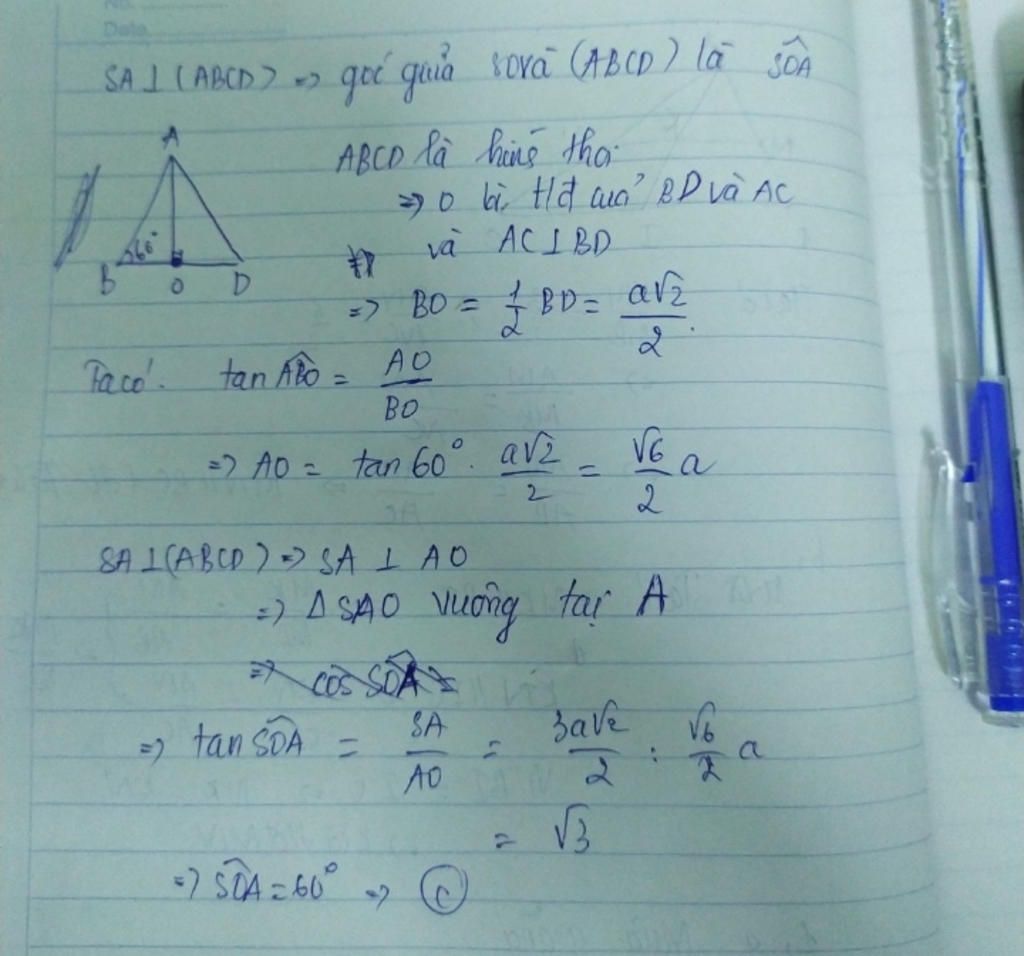 No.
Date
SA ⊥ (ABCD) => góc giữa SO và (ABCD) là \widehat{SOA}
A
60°
B O D
ABCD là hình thoi
=> O là t/đ của BD và AC
và AC ⊥ BD
=> BO = \frac{1}{2} BD = \frac{a\sqrt{2}}{2}.
Ta có: tan \widehat{ABO} = \frac{AO}{BO}
=> AO = tan 60° . \frac{a\sqrt{2}}{2} = \frac{\sqrt{6}}{2} a
SA ⊥ (ABCD) => SA ⊥ AO
=> Δ SAO vuông tại A
=> cos \widehat{SOA} =
=> tan \widehat{SOA} = \frac{SA}{AO} = \frac{3a\sqrt{2}}{2} : \frac{\sqrt{6}}{2} a
= \sqrt{3}
=> \widehat{SOA} = 60° => C